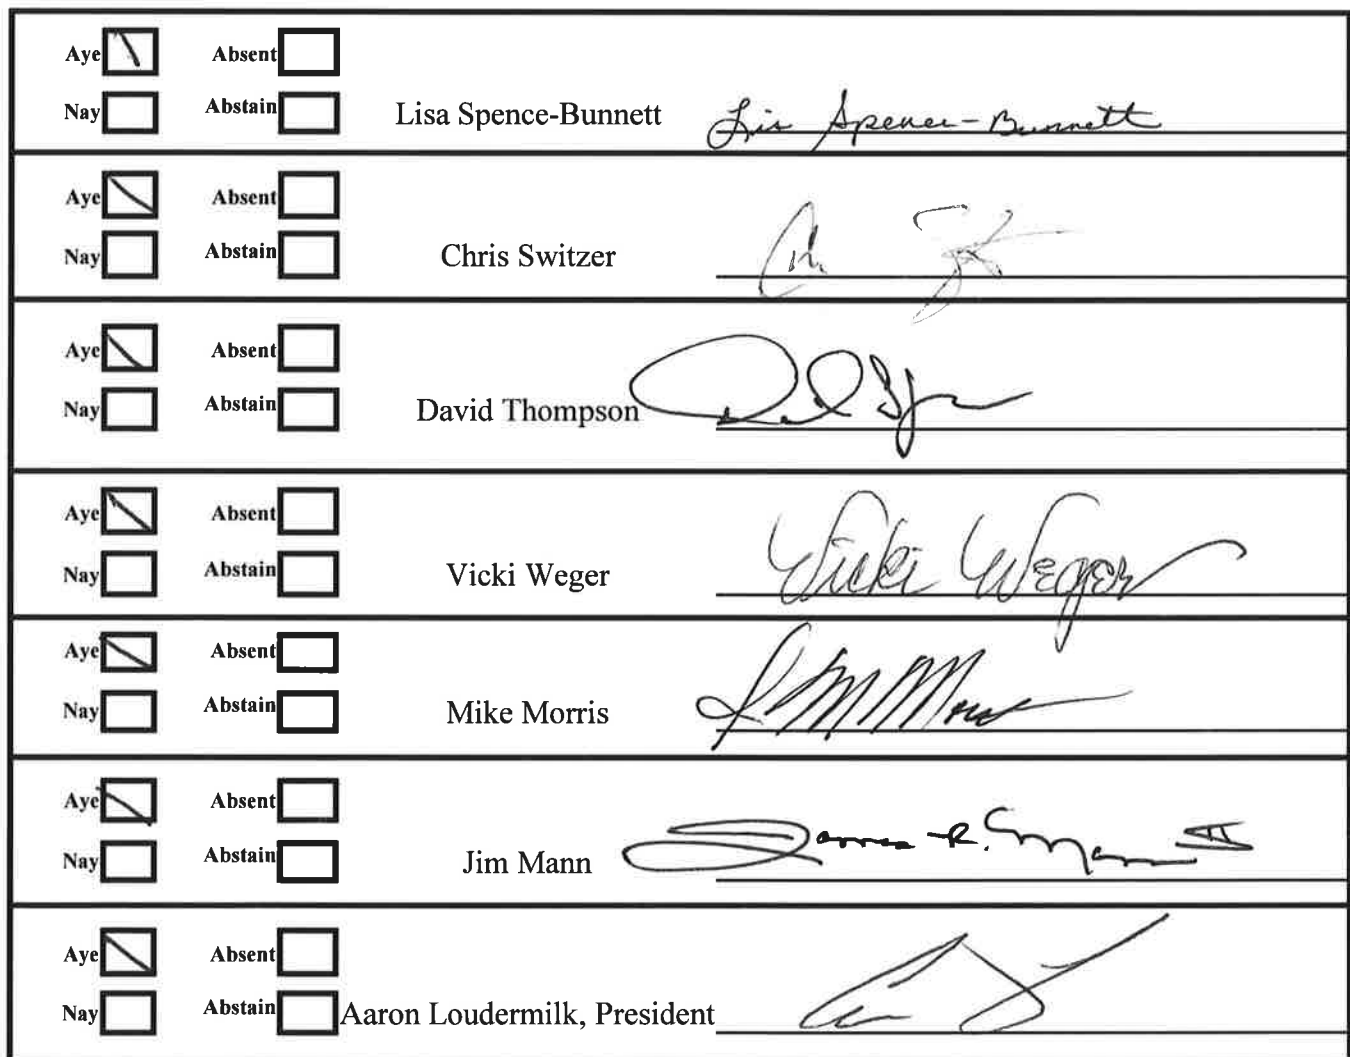 Aye Absent
Nay Abstain Lisa Spence-Bunnett Lisa Spence-Bunnett
Aye Absent
Nay Abstain Chris Switzer
Aye Absent
Nay Abstain David Thompson
Aye Absent
Nay Abstain Vicki Weger Vicki Weger
Aye Absent
Nay Abstain Mike Morris
Aye Absent
Nay Abstain Jim Mann James R. Mann II
Aye Absent
Nay Abstain Aaron Loudermilk, President